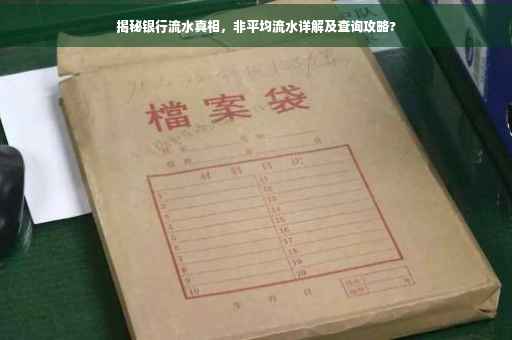 揭秘银行流水真相，非平均流水详解及查询攻略?
檔案袋
材料目次
1 11
2 12
3 13
4 14
5 15
6 16
7 17
8 18
9 19
10 20
年 月 日